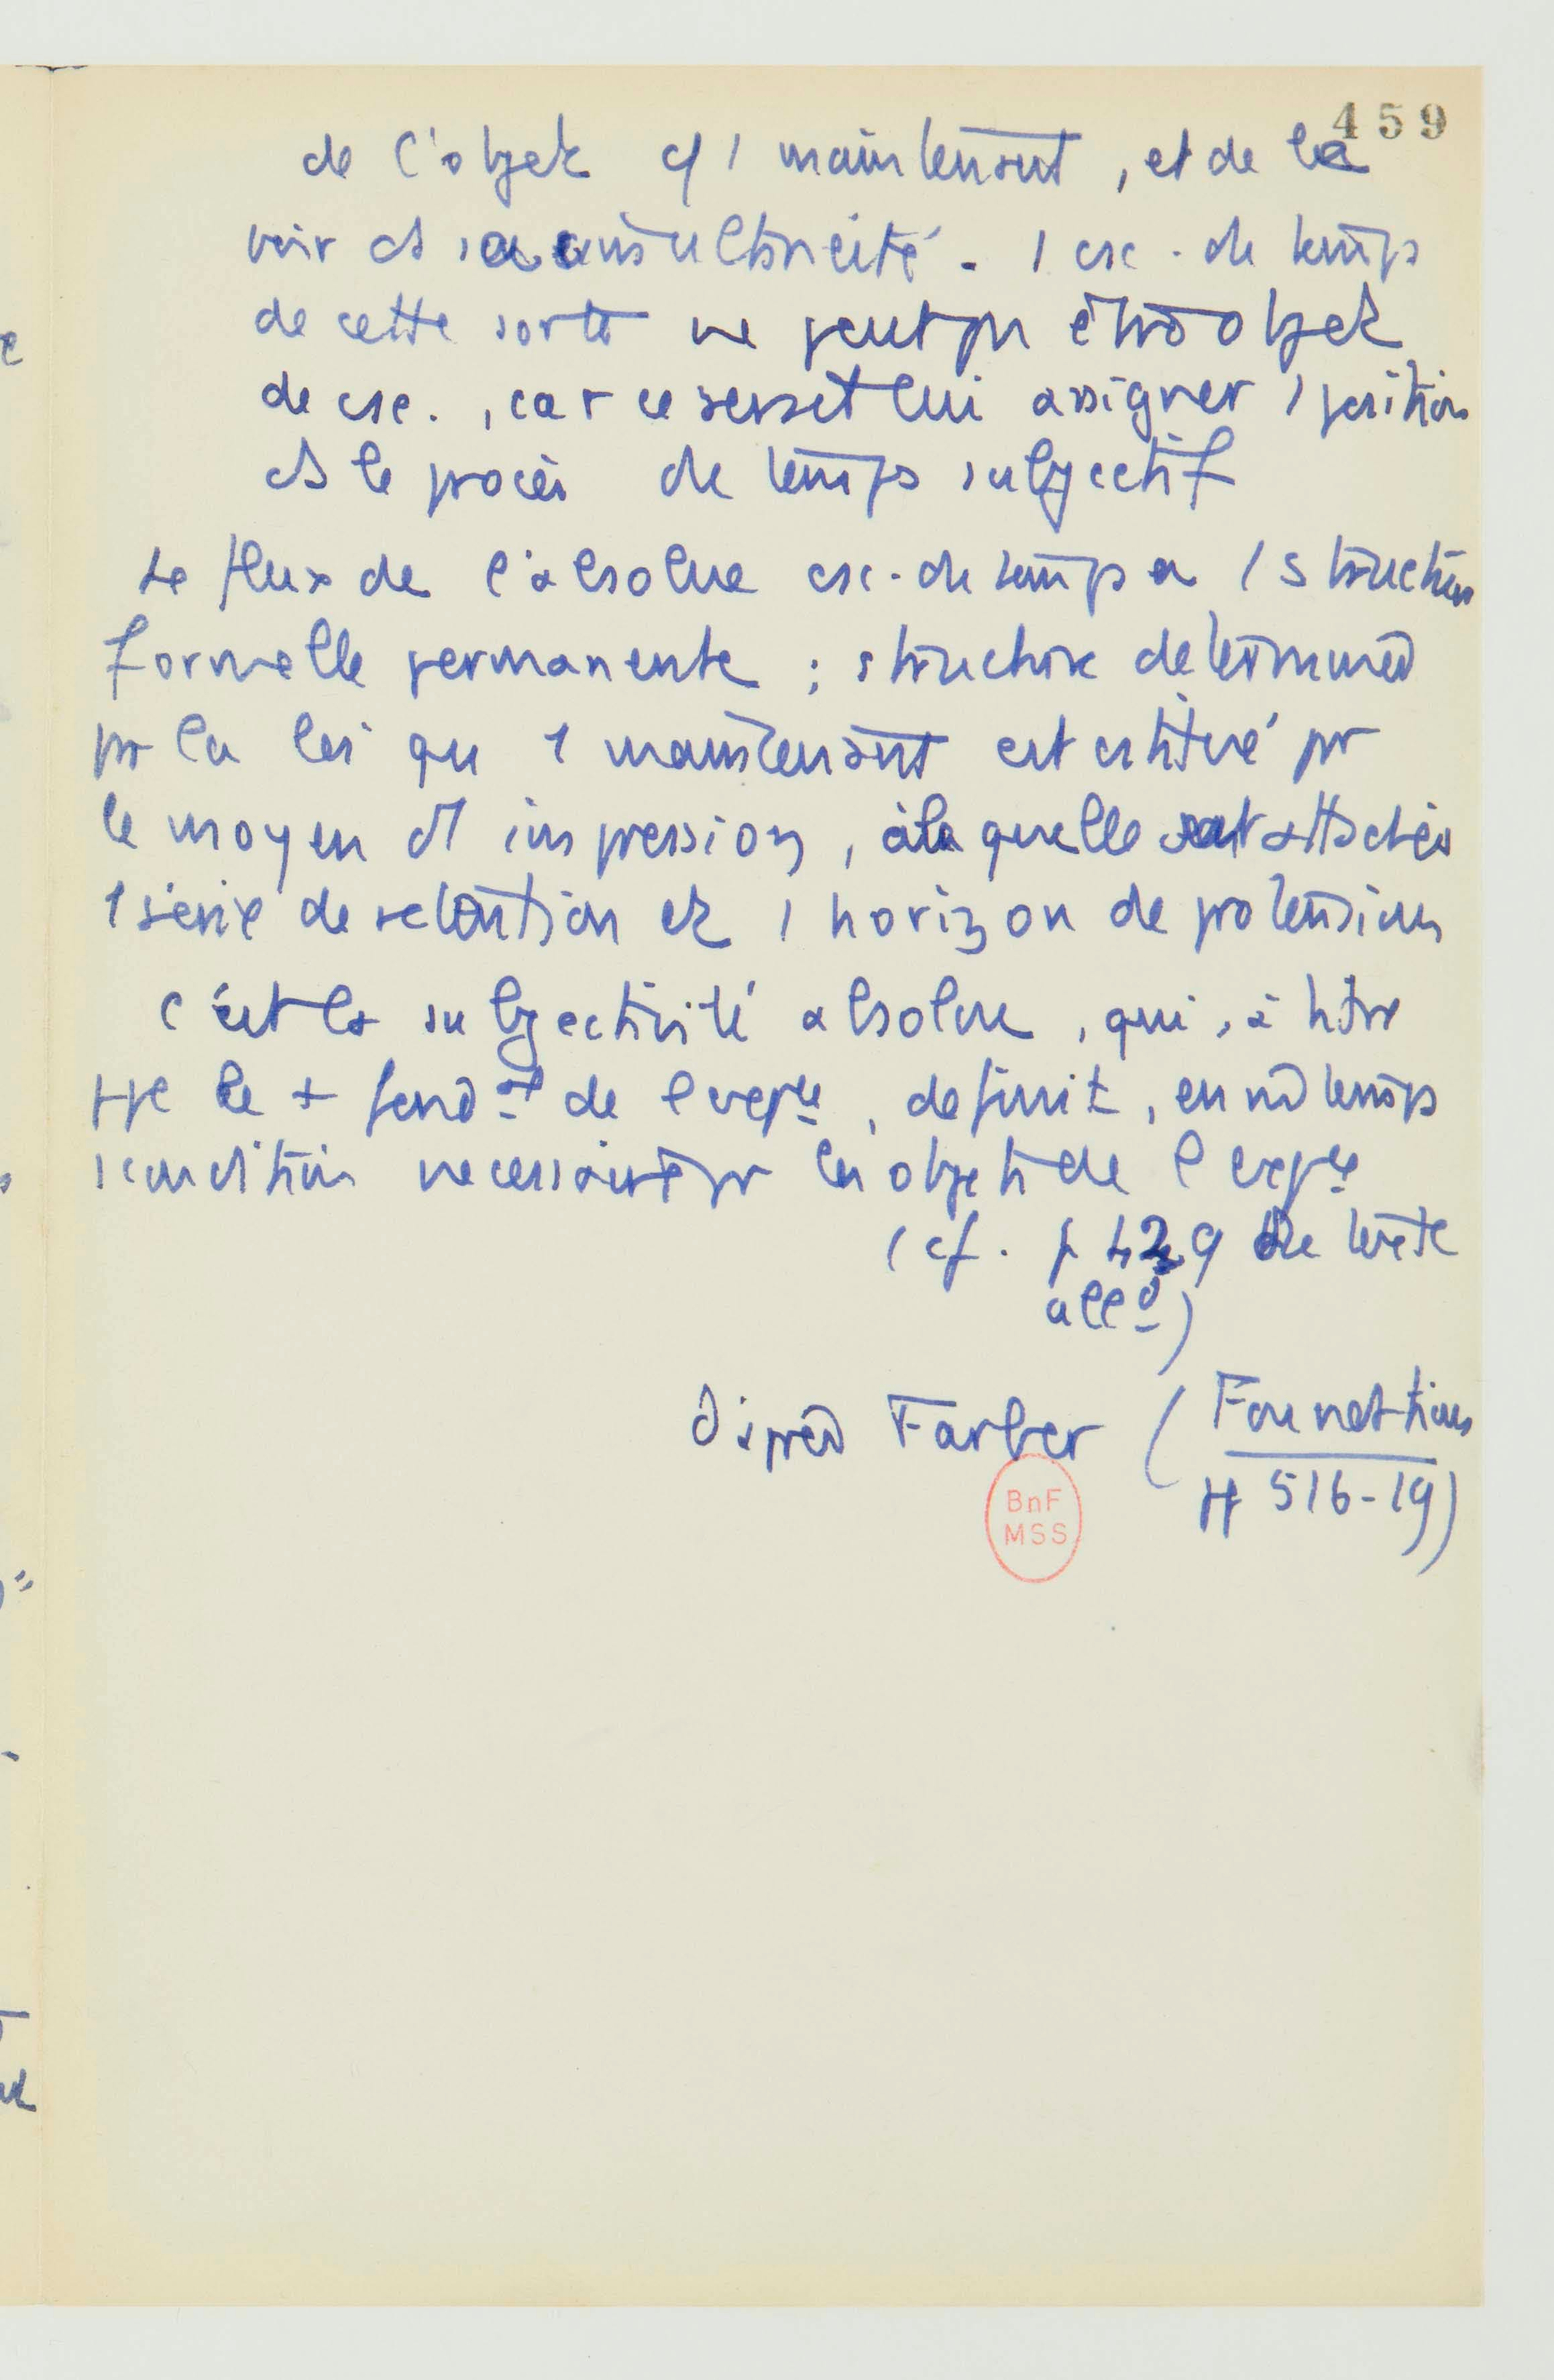 459
de l'objet cf 1 maintenant, et de la
voir ds sa simultanéité. 1 csc. du temps
de cette sorte ne peut pas être objet
de csc., car ce serait lui assigner 1 position
ds le procès du temps subjectif
Le flux de l'absolue csc. du temps a 1 structure
formelle permanente ; structure déterminée
pr la loi que 1 maintenant est cstitué pr
le moyen d'1 impression, à laquelle sont attachés
1 série de rétention et 1 horizon de protensions
C'est la subjectivité absolue, qui, à titre
le + fondt de l'expce, définit, en m temps
1 condition nécessaire pr les objets de l'expce
(cf. p 429 du texte
alld)
D'après Farber (Foundations
BnF
MSS
pp 516-19)